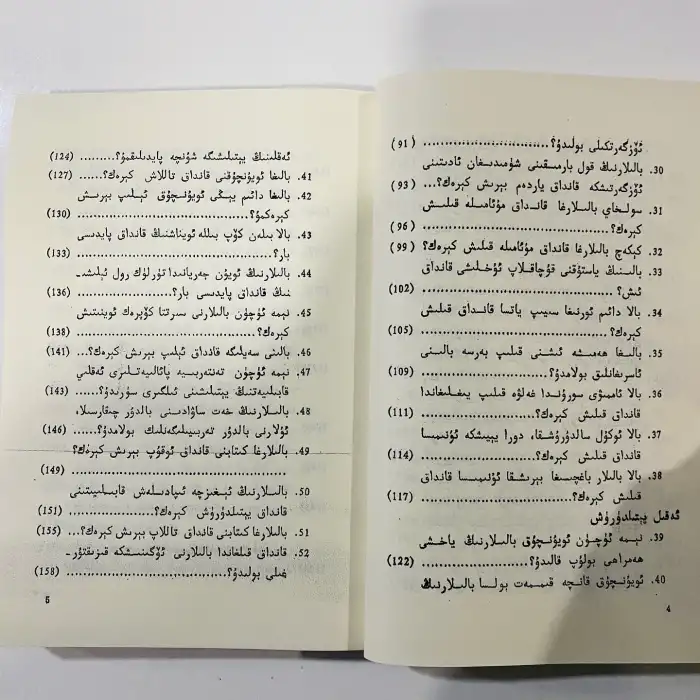 ئۆزگەرتكىلى بولىدۇ؟............................ (91)
30. بالىلارنىڭ قول بارمىقىنى شۈمىدىغان ئادىتىنى
ئۆزگەرتىشكە قانداق ياردەم بېرىش كېرەك؟... (93)
31. سولخاي بالىلارغا قانداق مۇئامىلە قىلىش
كېرەك؟............................................ (96)
32. كېكەچ بالىلارغا قانداق مۇئامىلە قىلىش كېرەك؟ (99)
33. بالىنىڭ ياستۇقنى قۇچاقلاپ ئۇخلىشى قانداق
ئىش؟............................................... (102)
34. بالا دائىم ئورنىغا سىيىپ ياتسا قانداق قىلىش
كېرەك؟............................................ (105)
35. بالىغا ھەمىشە ئىشنى قىلىپ بەرسە بالىنى
ئاسرىغانلىق بولامدۇ؟............................ (109)
36. بالا ئاممىۋى سورۇندا غەلۋە قىلىپ يىغلىغاندا
قانداق قىلىش كېرەك؟............................ (111)
37. بالا ئوكۇل سالدۇرۇشقا، دورا يېيىشكە ئۇنىمىسا
قانداق قىلىش كېرەك؟............................ (114)
38. بالا بالىلار باغچىسىغا بېرىشقا ئۇنىمىسا قانداق
قىلىش كېرەك؟.................................... (117)
ئەقىل يېتىلدۈرۈش
39. نېمە ئۈچۈن ئويۇنچۇق بالىلارنىڭ ياخشى
ھەمراھى بولۇپ قالىدۇ؟......................... (122)
40. ئويۇنچۇق قانچە قىممەت بولسا بالىلارنىڭ
4
ئەقلىنىڭ يېتىلىشىگە شۇنچە پايدىلىقمۇ؟......... (124)
41. بالىغا ئويۇنچۇقنى قانداق تاللاش كېرەك؟...... (127)
42. بالىغا دائىم يېڭى ئويۇنچۇق ئېلىپ بېرىش
كېرەكمۇ؟.......................................... (130)
43. بالا بىلەن كۆپ بىللە ئويناشنىڭ قانداق پايدىسى
بار؟................................................ (133)
44. بالىلارنىڭ ئويۇن جەريانىدا تۈرلۈك رول ئېلىشى-
نىڭ قانداق پايدىسى بار؟........................ (136)
45. نېمە ئۈچۈن بالىلارنى سىرتتا كۆپرەك ئوينىتىش
كېرەك؟............................................ (138)
46. بالىنى سەيلىگە قانداق ئېلىپ بېرىش كېرەك؟... (141)
47. نېمە ئۈچۈن تەنتەربىيە پائالىيەتلىرى ئەقلىي
قابىلىيەتنىڭ يېتىلىشىنى ئىلگىرى سۈرىدۇ؟...... (143)
48. بالىلارنىڭ خەت ساۋادىنى بالدۇر چىقارسىلا،
ئۇلارنى بالدۇر تەربىيىلىگەنلىك بولامدۇ؟...... (146)
49. بالىلارغا كىتابنى قانداق ئوقۇپ بېرىش كېرەك؟
.................................................... (149)
50. بالىلارنىڭ ئېغىزچە ئىپادىلەش قابىلىيىتىنى
قانداق يېتىلدۈرۈش كېرەك؟..................... (151)
51. بالىلارغا كىتابنى قانداق تاللاپ بېرىش كېرەك؟... (155)
52. قانداق قىلغاندا بالىلارنى ئۆگىنىشكە قىزىقتۇر-
غىلى بولىدۇ؟..................................... (158)
5